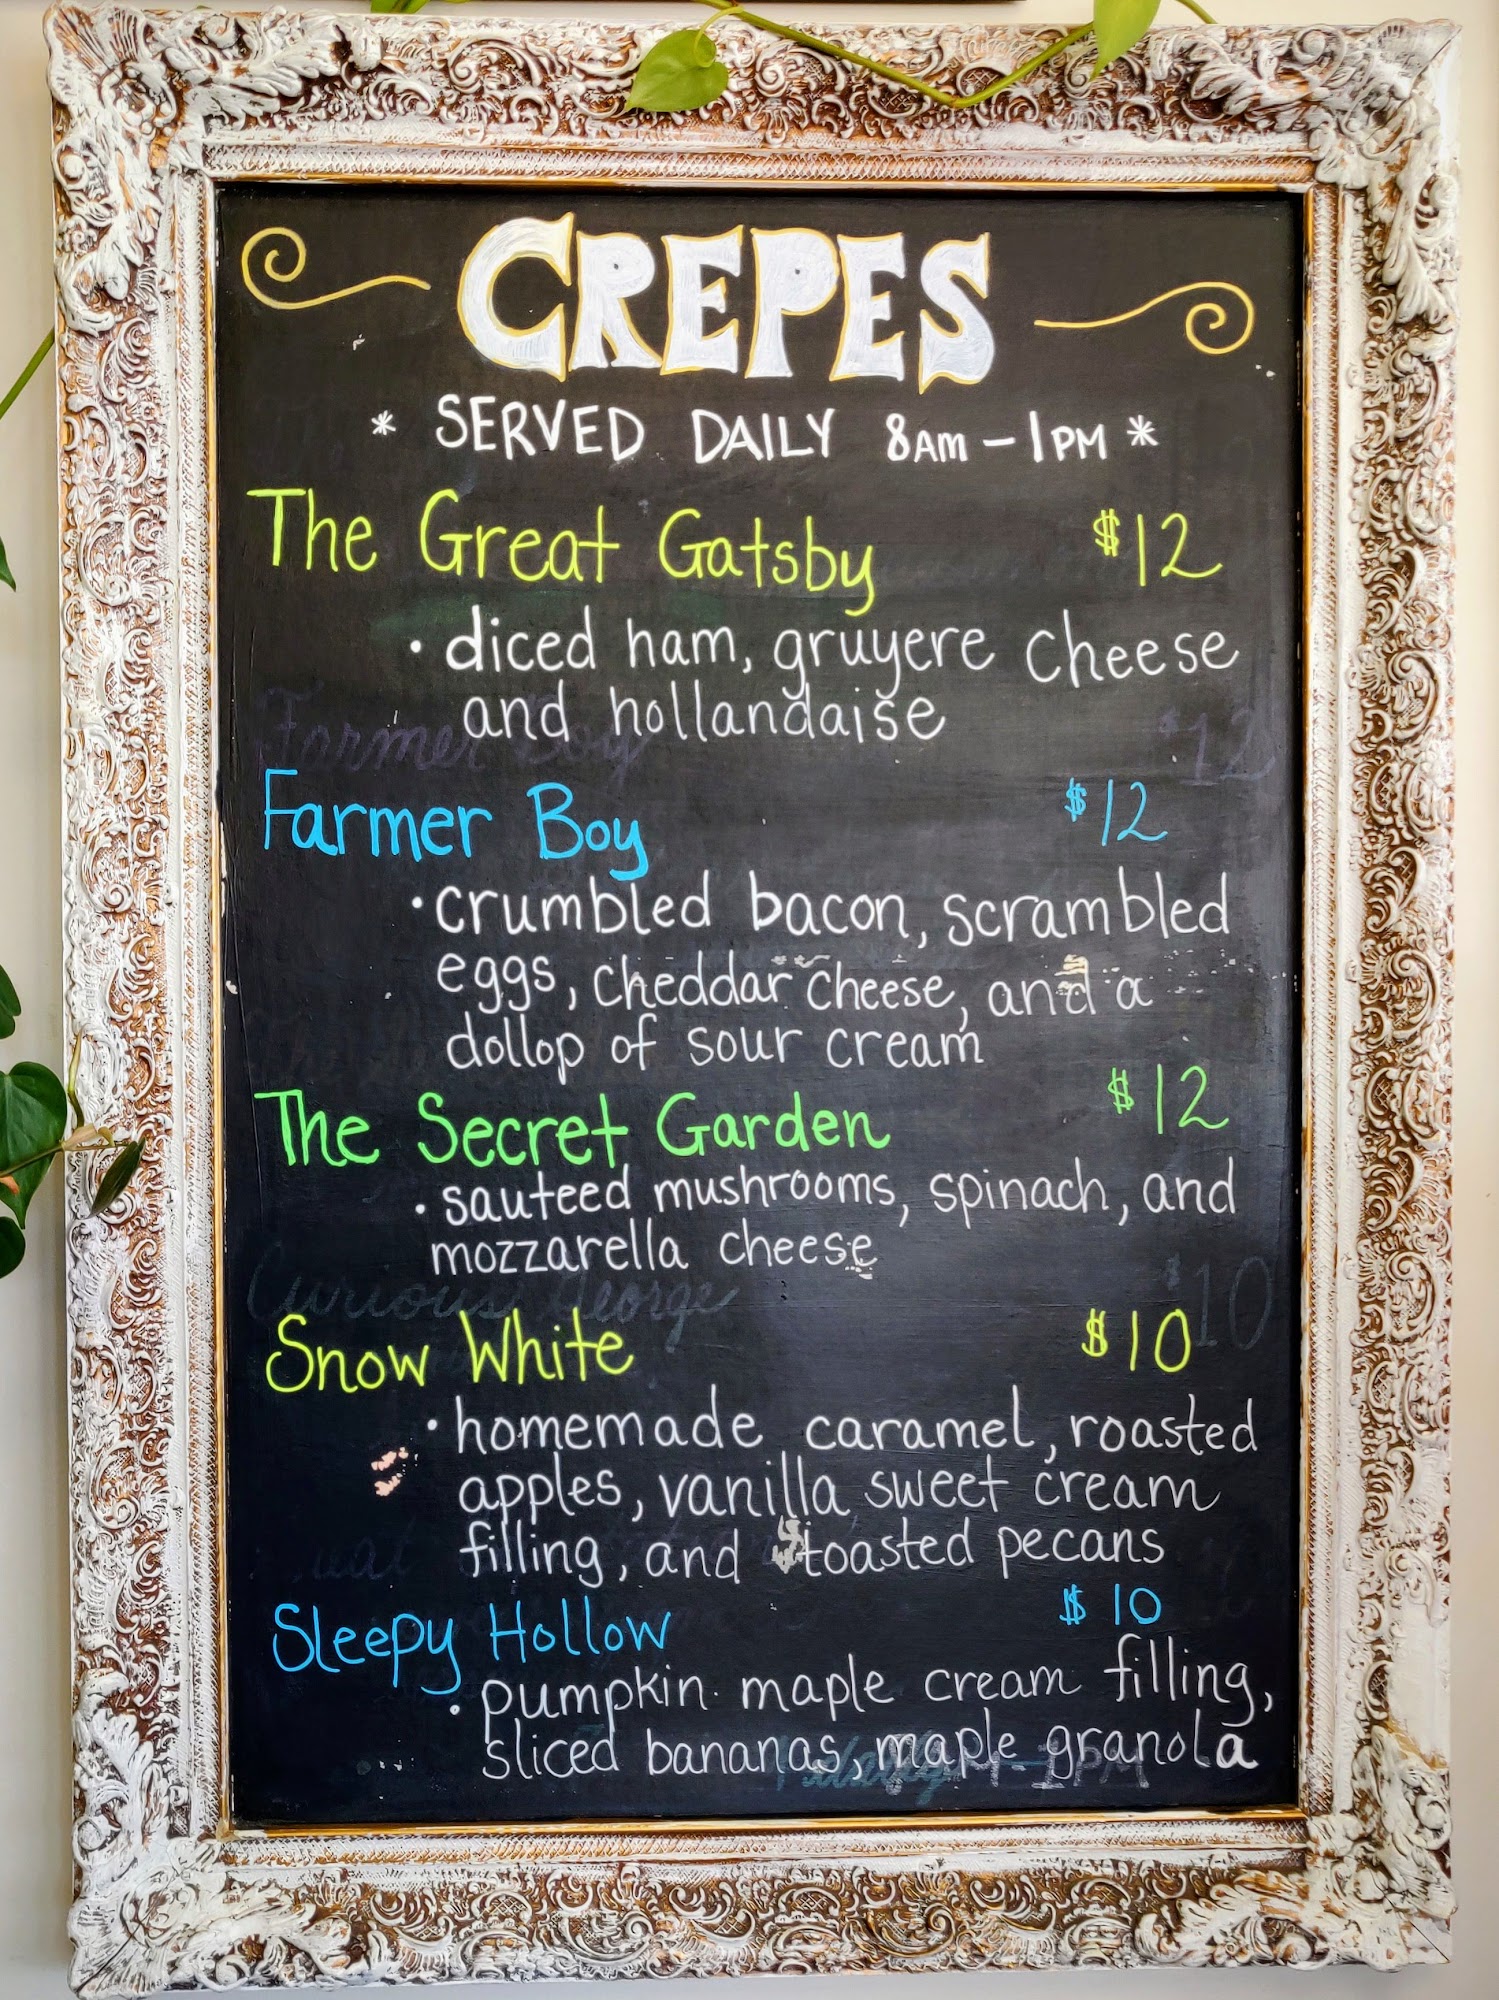 CREPES
* SERVED DAILY 8AM - 1PM *
The Great Gatsby $12
• diced ham, gruyere cheese
and hollandaise
Farmer Boy $12
Farmer Boy $12
• crumbled bacon, scrambled
eggs, cheddar cheese, and a
dollop of sour cream
The Secret Garden $12
• sauteed mushrooms, spinach, and
mozzarella cheese
Curious George $10
Snow White $10
• homemade caramel, roasted
apples, vanilla sweet cream
filling, and toasted pecans
Sleepy Hollow $10
• pumpkin maple cream filling,
sliced bananas, maple granola